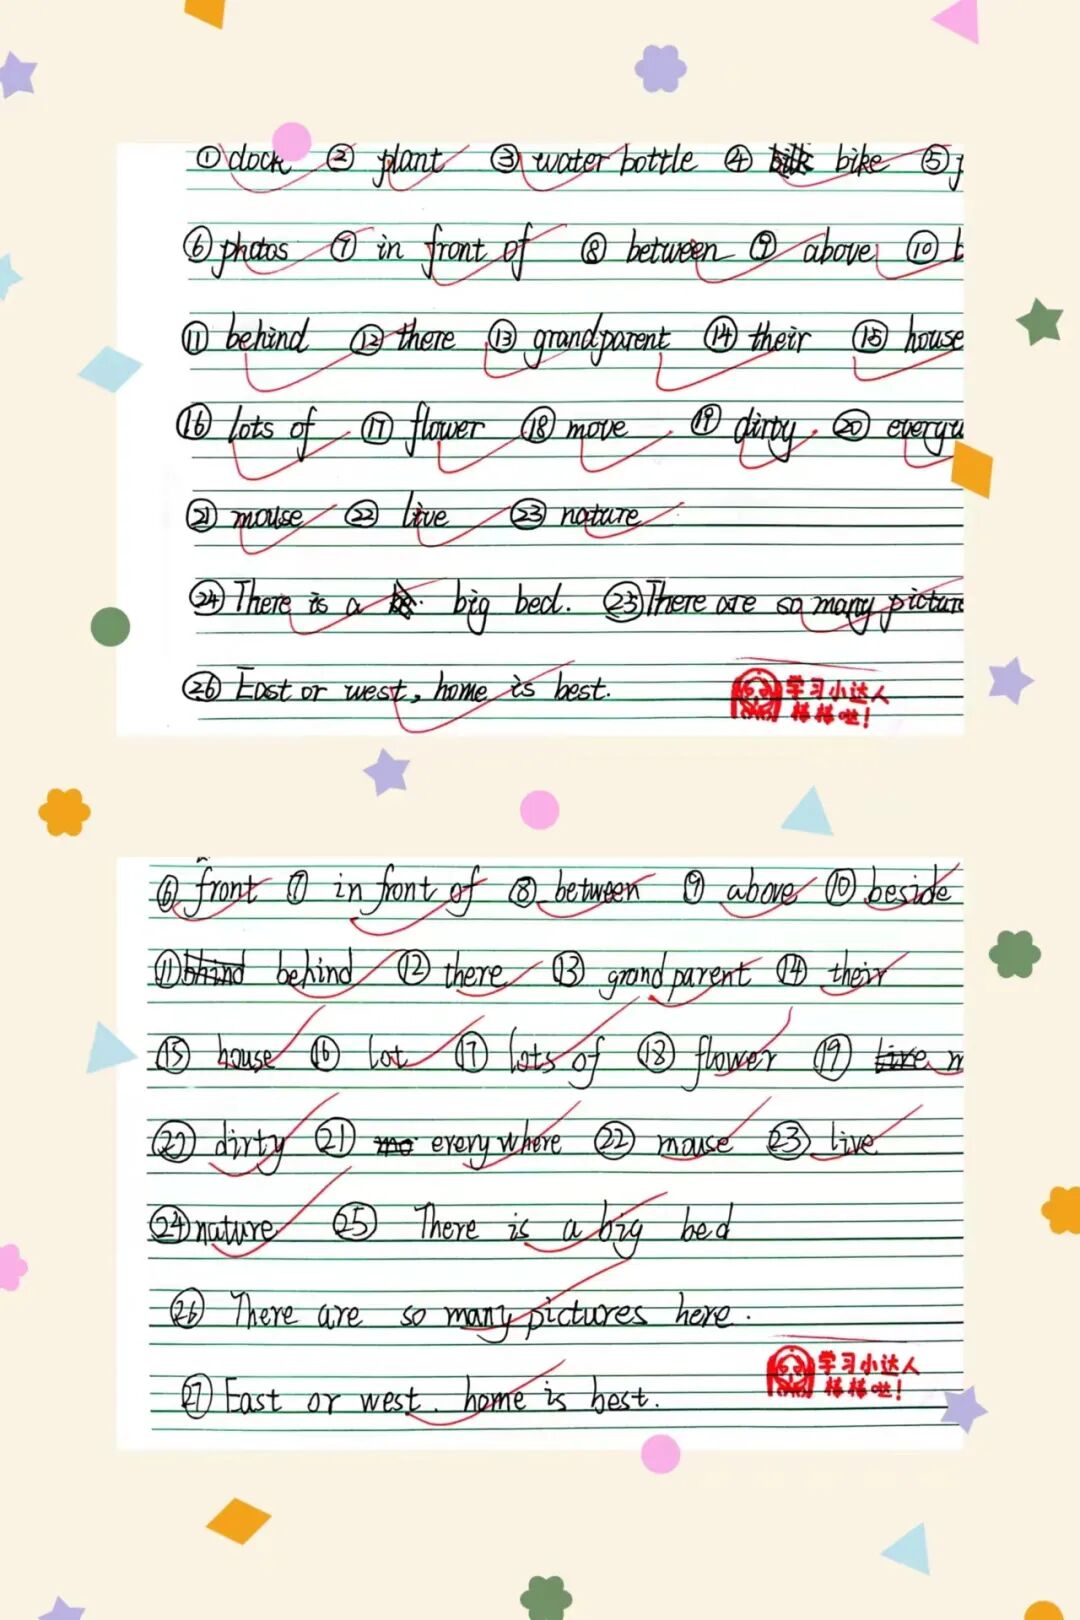 ① clock ② plant ③ water bottle ④ bike ⑤
⑥ photos ⑦ in front of ⑧ between ⑨ above ⑩ b
⑪ behind ⑫ there ⑬ grandparent ⑭ their ⑮ house
⑯ lots of ⑰ flower ⑱ move ⑲ dirty ⑳ everyw
㉑ mouse ㉒ live ㉓ nature
㉔ There is a big bed. ㉕ There are so many pictur
㉖ East or west, home is best.
学习小达人
棒棒哒!
⑥ front ⑦ in front of ⑧ between ⑨ above ⑩ beside
⑪ behind ⑫ there ⑬ grandparent ⑭ their
⑮ house ⑯ lot ⑰ lots of ⑱ flower ⑲ m
⑳ dirty ㉑ everywhere ㉒ mouse ㉓ live
㉔ nature ㉕ There is a big bed
㉖ There are so many pictures here.
㉗ East or west. home is best.
学习小达人
棒棒哒!